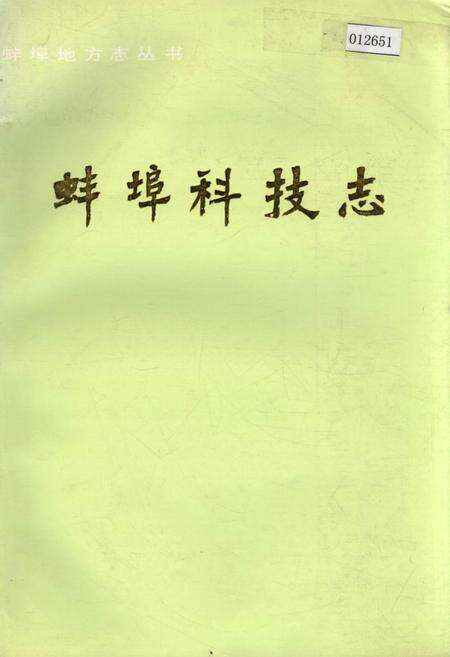 012651
蚌埠地方志丛书
蚌埠科技志